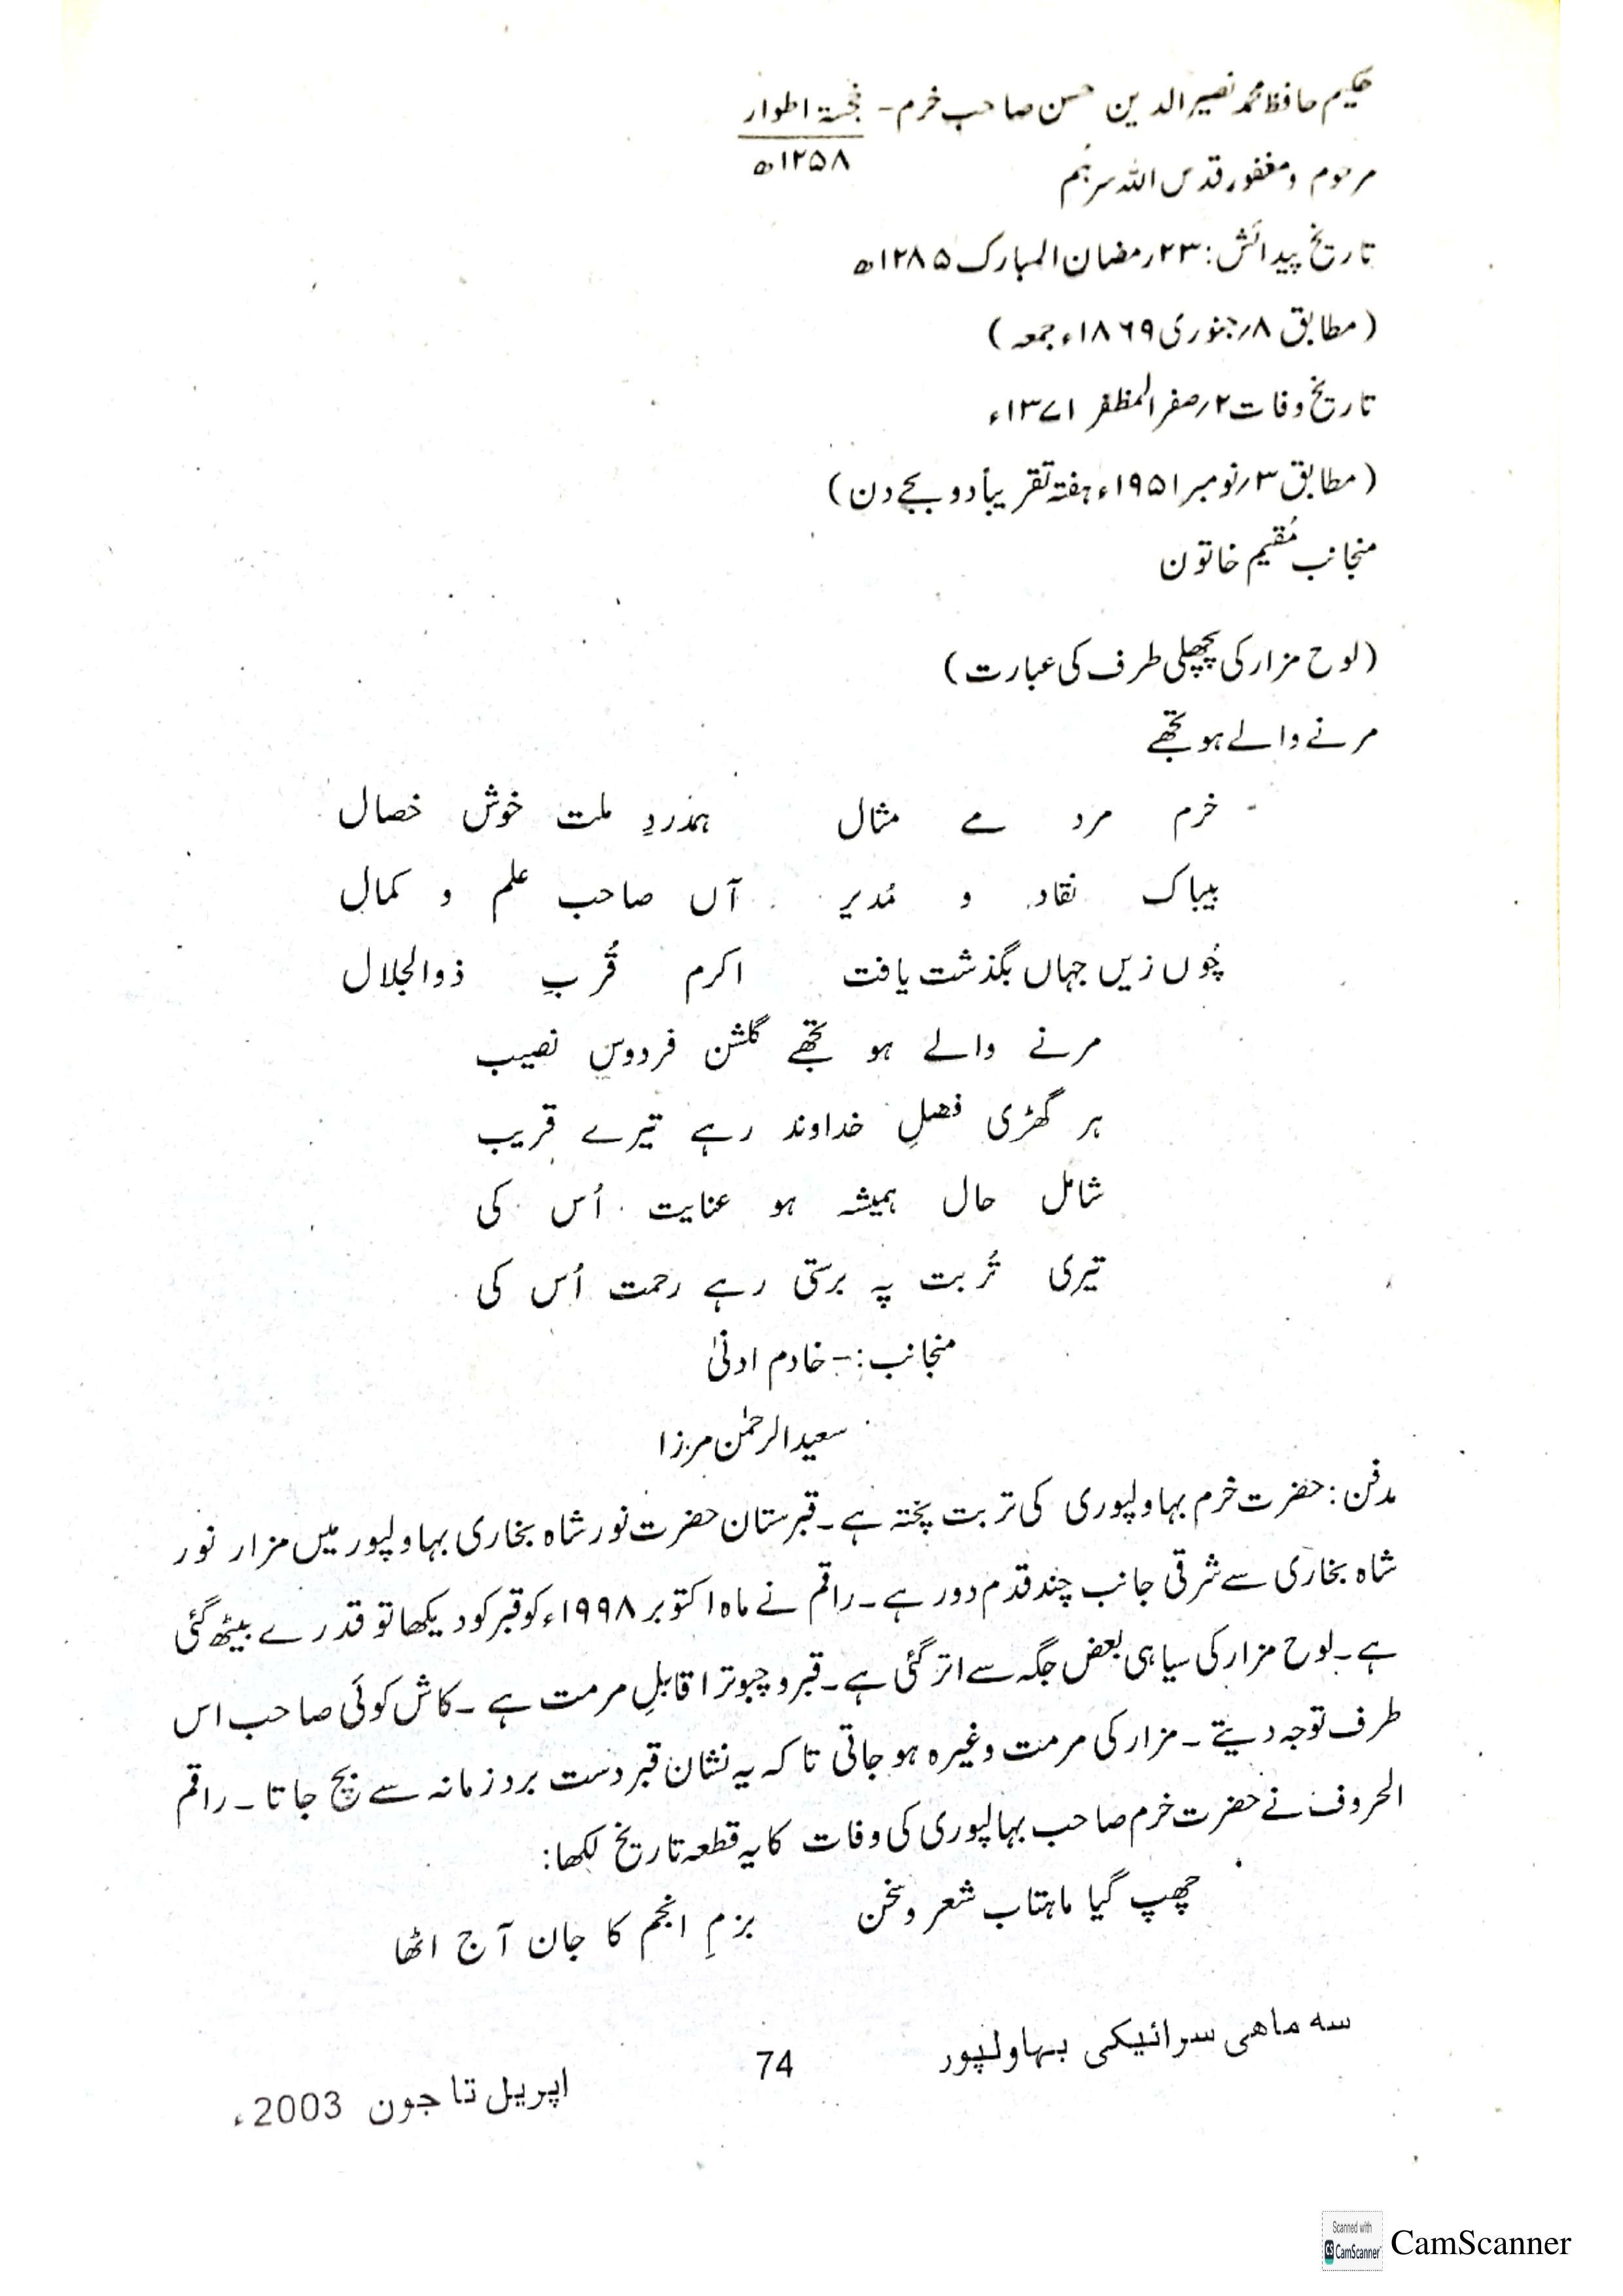 حکیم حافظ محمد نصیر الدین حسن صاحب خرم۔ خجستہ اطوار
۱۲۵۸ھ
مرحوم و مغفور قدس اللہ سرہُم
تاریخ پیدائش: ۲۳؍رمضان المبارک ۱۲۸۵ھ
(مطابق ۸؍جنوری ۱۸۶۹ء جمعہ)
تاریخ وفات ۲؍صفر المظفر ۱۳۷۱ء
(مطابق ۳؍نومبر ۱۹۵۱ء ہفتہ تقریباً دو بجے دن)
منجانب مُقیم خاتون
(لوح مزار کی پچھلی طرف کی عبارت)
مرنے والے ہو تجھے
خرم مرد بے مثال ہمدردِ ملت خوش خصال
بیباک نقاد و مُدیر آں صاحب علم و کمال
چُوں زیں جہاں بگذشت یافت اکرم قُربِ ذوالجلال
مرنے والے ہو تجھے گلشن فردوس نصیب
ہر گھڑی فضلِ خداوند رہے تیرے قریب
شامل حال ہمیشہ ہو عنایت اُس کی
تیری تُربت پہ برستی رہے رحمت اُس کی
منجانب:۔ خادم ادنیٰ
سعید الرحمٰن مرزا
مدفن: حضرت خرم بہاولپوری کی تربت پختہ ہے۔ قبرستان حضرت نور شاہ بخاری بہاولپور میں مزار نور
شاہ بخاری سے شرقی جانب چند قدم دور ہے۔ راقم نے ماہ اکتوبر ۱۹۹۸ء کو قبر کو دیکھا تو قدرے بیٹھ گئی
ہے۔ لوح مزار کی سیاہی بعض جگہ سے اتر گئی ہے۔ قبر و چبوترا قابلِ مرمت ہے ۔ کاش کوئی صاحب اس
طرف توجہ دیتے ۔ مزار کی مرمت وغیرہ ہو جاتی تا کہ یہ نشان قبر دست برد زمانہ سے بچ جاتا۔ راقم
الحروف نے حضرت خرم صاحب بہالپوری کی وفات کا یہ قطعہ تاریخ لکھا:
چھپ گیا ماہتاب شعر و سخن بزمِ انجم کا جان آج اٹھا
سہ ماہی سرائیکی بہاولپور 74 اپریل تا جون 2003ء
Scanned with
CS CamScanner
CamScanner